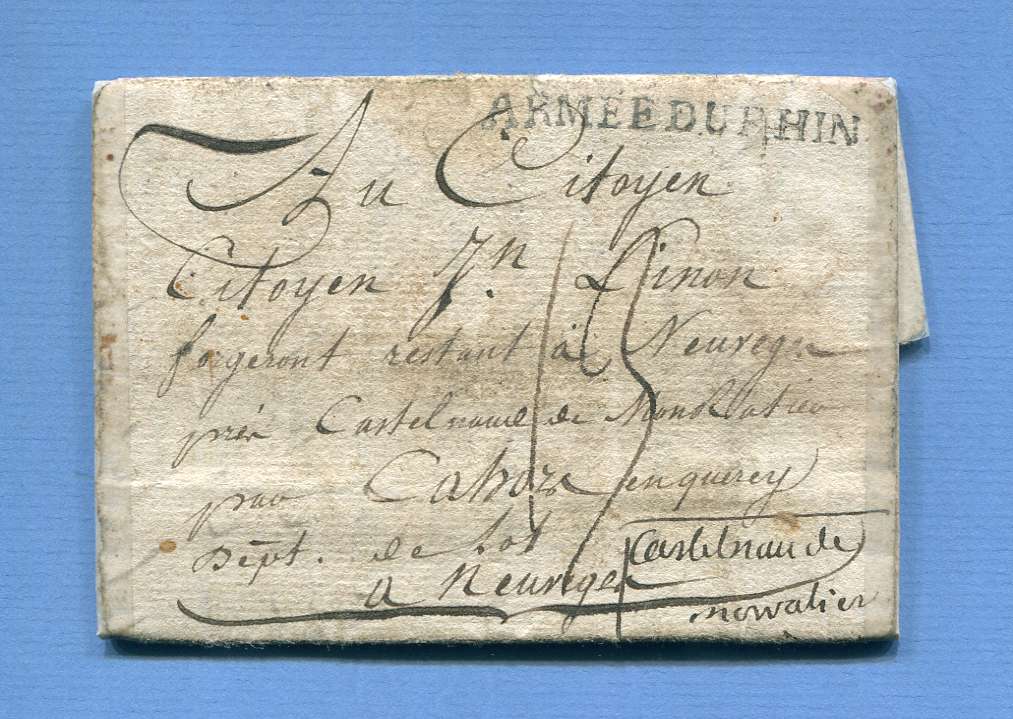 ARMEE DU RHIN
Au Citoyen
Citoyen Jn. Linon
forgeront restant à Neurege
près Castelnaud de Monllatier
par Cahors en querey
Dépt. de Lot
A Neurege
15
Castelnau de
nowatier